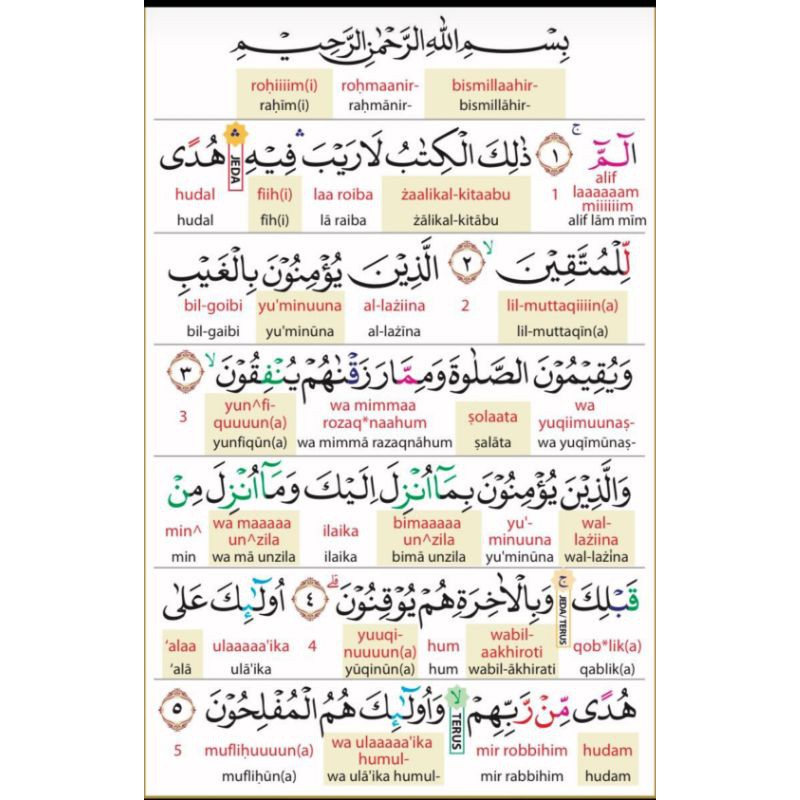 بِسْمِ اللّٰهِ الرَّحْمٰنِ الرَّحِيْمِ
bismillaahir- roḥmaanir- roḥiiiim(i)
bismillāhir- raḥmānir- raḥīm(i)
الۤمّۤ ۚ ١ ذٰلِكَ الْكِتٰبُ لَا رَيْبَ ۛ فِيْهِ ۛ JEDA هُدًى
alif laaaaaam miiiiiim 1 żaalikal-kitaabu laa roiba fiih(i) hudal
alif lām mīm żālikal-kitābu lā raiba fīh(i) hudal
لِّلْمُتَّقِيْنَ ۙ ٢ الَّذِيْنَ يُؤْمِنُوْنَ بِالْغَيْبِ
lil-muttaqiiiin(a) 2 al-lażiina yu'minuuna bil-goibi
lil-muttaqīn(a) al-lażīna yu'minūna bil-gaibi
وَيُقِيْمُوْنَ الصَّلٰوةَ وَمِمَّا رَزَقْنٰهُمْ يُنْفِقُوْنَ ۙ ٣
wa yuqiimuunaṣ- ṣolaata wa mimmaa rozaq*naahum yun^fi-quuuun(a) 3
wa yuqīmūnaṣ- ṣalāta wa mimmā razaqnāhum yunfiqūn(a)
وَالَّذِيْنَ يُؤْمِنُوْنَ بِمَآ اُنْزِلَ اِلَيْكَ وَمَآ اُنْزِلَ مِنْ
wal-lażiina yu'-minuuna bimaaaaa un^zila ilaika wa maaaaa un^zila min^
wal-lażīna yu'minūna bimā unzila ilaika wa mā unzila min
قَبْلِكَ ۚ JEDA/TERUS وَبِالْاٰخِرَةِ هُمْ يُوْقِنُوْنَ ۗ ٤ اُولٰۤىِٕكَ عَلٰى
qob*lik(a) wabil-aakhiroti hum yuuqi-nuuuun(a) 4 ulaaaaa'ika 'alaa
qablik(a) wabil-ākhirati hum yūqinūn(a) ulā'ika 'alā
هُدًى مِّنْ رَّبِّهِمْ ۙ TERUS وَاُولٰۤىِٕكَ هُمُ الْمُفْلِحُوْنَ ٥
hudam mir robbihim wa ulaaaaa'ika humul- mufliḥuuuun(a) 5
hudam mir rabbihim wa ulā'ika humul- mufliḥūn(a)